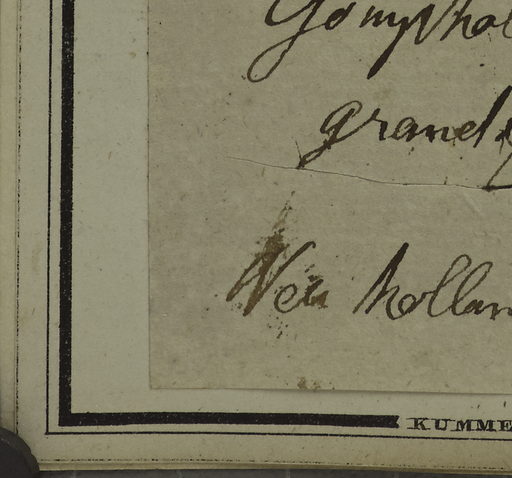 Gomphol
grand
Neu hollan
KUMME